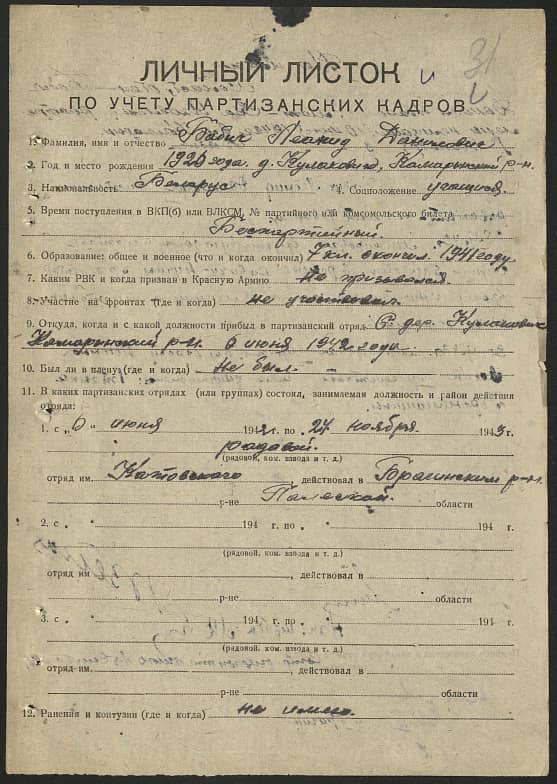 31
ЛИЧНЫЙ ЛИСТОК
ПО УЧЕТУ ПАРТИЗАНСКИХ КАДРОВ
1. Фамилия, имя и отчество Бабич Леанид Данилович
2. Год и место рождения 1926 года. д. Кулаковичи, Комарынский р-н.
3. Национальность Беларус 4. Соцположение учащийся.
5. Время поступления в ВКП(б) или ВЛКСМ, № партийного или комсомольского билета
Беспартийный.
6. Образование: общее и военное (что и когда окончил) 7 кл. окончил 1941 году.
7. Каким РВК и когда призван в Красную Армию Не призывался.
8. Участие на фронтах (где и когда) не участвовал.
9. Откуда, когда и с какой должности прибыл в партизанский отряд С дер. Кулаковичи
Комарынский р-н. 6 июня 1942 года.
10. Был ли в плену (где и когда) Не был.
11. В каких партизанских отрядах (или группах) состоял, занимаемая должность и район действия
отряда:
1. с „6 " июня 1942 г. по „ 24 ноября 1943 г.
радавой.
(рядовой, ком. взвода и т. д.)
отряд им. Котовского действовал в Брагинским р-н.
р-не Палеской. области
2. с „ " 194 г. по „ " 194 г.
(рядовой, ком. взвода и т. д.)
отряд им. , действовал в
р-не области
3. с „ " 194 г. по „ " 194 г.
(рядовой, ком. взвода и т. д.)
отряд им. , действовал в
р-не области
12. Ранения и контузии (где и когда) не имею.